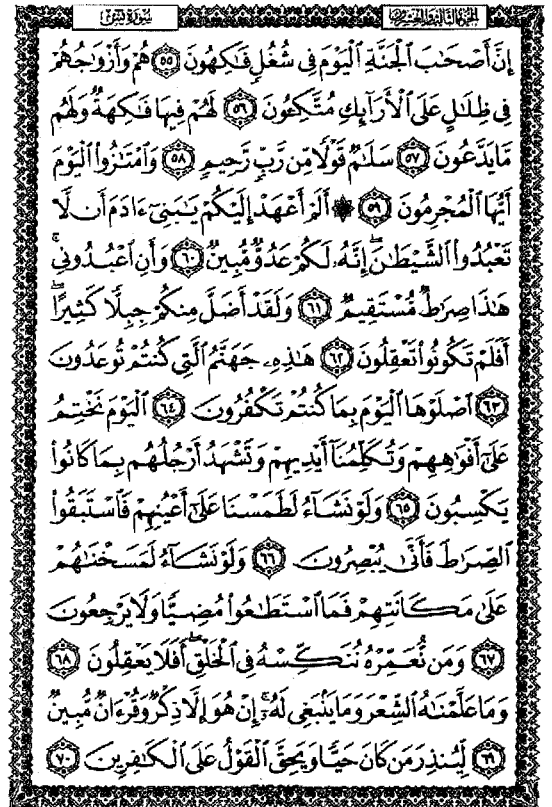 سُورَةُ يسٓ
الجُزْءُ الثَّالِثُ وَالعِشْرُونَ
إِنَّ أَصْحَٰبَ ٱلْجَنَّةِ ٱلْيَوْمَ فِى شُغُلٍ فَٰكِهُونَ ٥٥ هُمْ وَأَزْوَٰجُهُمْ
فِى ظِلَٰلٍ عَلَى ٱلْأَرَآئِكِ مُتَّكِـُٔونَ ٥٦ لَهُمْ فِيهَا فَٰكِهَةٌ وَلَهُم
مَّا يَدَّعُونَ ٥٧ سَلَٰمٌ قَوْلًا مِّن رَّبٍّ رَّحِيمٍ ٥٨ وَٱمْتَٰزُوا۟ ٱلْيَوْمَ
أَيُّهَا ٱلْمُجْرِمُونَ ٥٩ ۞ أَلَمْ أَعْهَدْ إِلَيْكُمْ يَٰبَنِىٓ ءَادَمَ أَن لَّا
تَعْبُدُوا۟ ٱلشَّيْطَٰنَ ۖ إِنَّهُۥ لَكُمْ عَدُوٌّ مُّبِينٌ ٦٠ وَأَنِ ٱعْبُدُونِى ۚ
هَٰذَا صِرَٰطٌ مُّسْتَقِيمٌ ٦١ وَلَقَدْ أَضَلَّ مِنكُمْ جِبِلًّا كَثِيرًا ۖ
أَفَلَمْ تَكُونُوا۟ تَعْقِلُونَ ٦٢ هَٰذِهِۦ جَهَنَّمُ ٱلَّتِى كُنتُمْ تُوعَدُونَ
٦٣ ٱصْلَوْهَا ٱلْيَوْمَ بِمَا كُنتُمْ تَكْفُرُونَ ٦٤ ٱلْيَوْمَ نَخْتِمُ
عَلَىٰٓ أَفْوَٰهِهِمْ وَتُكَلِّمُنَآ أَيْدِيهِمْ وَتَشْهَدُ أَرْجُلُهُم بِمَا كَانُوا۟
يَكْسِبُونَ ٦٥ وَلَوْ نَشَآءُ لَطَمَسْنَا عَلَىٰٓ أَعْيُنِهِمْ فَٱسْتَبَقُوا۟
ٱلصِّرَٰطَ فَأَنَّىٰ يُبْصِرُونَ ٦٦ وَلَوْ نَشَآءُ لَمَسَخْنَٰهُمْ
عَلَىٰ مَكَانَتِهِمْ فَمَا ٱسْتَطَٰعُوا۟ مُضِيًّا وَلَا يَرْجِعُونَ
٦٧ وَمَن نُّعَمِّرْهُ نُنَكِّسْهُ فِى ٱلْخَلْقِ ۖ أَفَلَا يَعْقِلُونَ ٦٨
وَمَا عَلَّمْنَٰهُ ٱلشِّعْرَ وَمَا يَنۢبَغِى لَهُۥٓ ۚ إِنْ هُوَ إِلَّا ذِكْرٌ وَقُرْءَانٌ مُّبِينٌ
٦٩ لِّيُنذِرَ مَن كَانَ حَيًّا وَيَحِقَّ ٱلْقَوْلُ عَلَى ٱلْكَٰفِرِينَ ٧٠